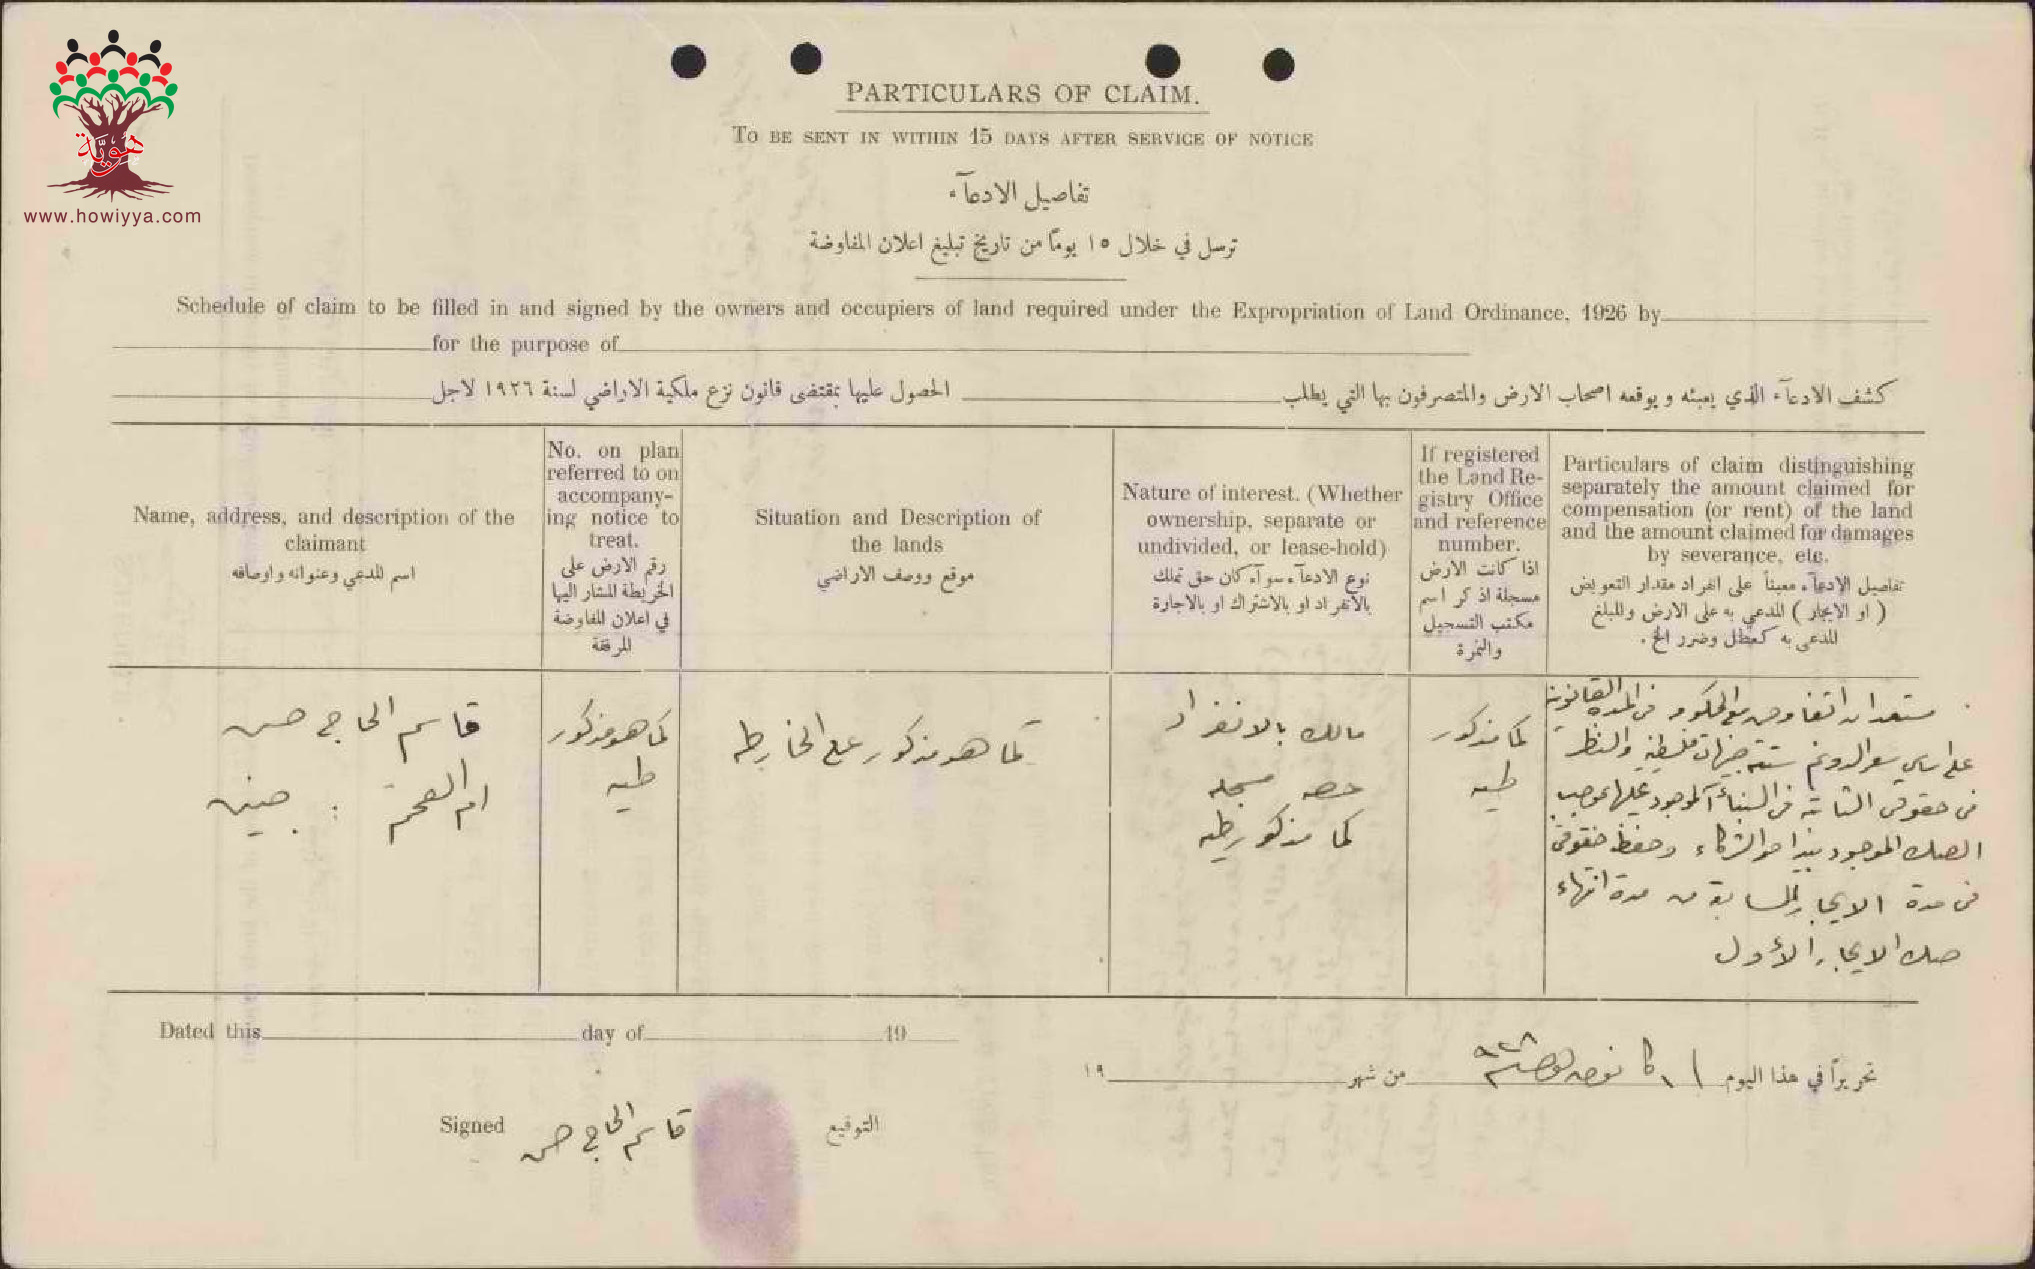 هويّة
www.howiyya.com
PARTICULARS OF CLAIM.
TO BE SENT IN WITHIN 15 DAYS AFTER SERVICE OF NOTICE
تفاصيل الادعآء
ترسل في خلال ١٥ يوماً من تاريخ تبليغ اعلان المفاوضة
Schedule of claim to be filled in and signed by the owners and occupiers of land required under the Expropriation of Land Ordinance, 1926 by
for the purpose of
كشف الادعآء الذي يعبئه و يوقعه اصحاب الارض والمتصرفون بها التي يطلب الحصول عليها بمقتضى قانون نزع ملكية الاراضي لسنة ١٩٢٦ لاجل
Name, address, and description of the
claimant
اسم المدعي وعنوانه واوصافه
No. on plan
referred to on
accompany-
ing notice to
treat.
رقم الارض على
الخريطة المشار اليها
في اعلان المفاوضة
المرفقة
Situation and Description of
the lands
موقع ووصف الاراضي
Nature of interest. (Whether
ownership, separate or
undivided, or lease-hold)
نوع الادعآء سوآء كان حق تملك
بالانفراد او بالاشتراك او بالاجارة
If registered
the Land Re-
gistry Office
and reference
number.
اذا كانت الارض
مسجلة اذكر اسم
مكتب التسجيل
والنمرة
Particulars of claim distinguishing
separately the amount claimed for
compensation (or rent) of the land
and the amount claimed for damages
by severance, etc.
تفاصيل الادعآء معيناً على انفراد مقدار التعويض
( او الايجار ) المدعي به على الارض والمبلغ
المدعى به كعطل وضرر الخ.
قاسم الحاج حسن
ام الفحم : جنين
كما هو مذكور
طيه
كما هو مذكور على الخارطه
مالك بالانفراد
حصه مسجله
كما مذكور طيه
كما مذكور
طيه
مستعد ان اتفاوض مع الحكومه في المدة القانونية
على اساس سعر الدونم ستة جنيهات فلسطينية والنظر
في حقوقي الثابته في البنآء الموجود عليها بموجب
الصك الموجود بيد احد الشركاء وحفظ حقوقي
في مدة الايجار السابقة من مدة انتهاء
صك الايجار الأول
Dated this day of 19
تحريراً في هذا اليوم ١١ من شهر ١٩
٩٢٨
Signed قاسم الحاج حسن التوقيع